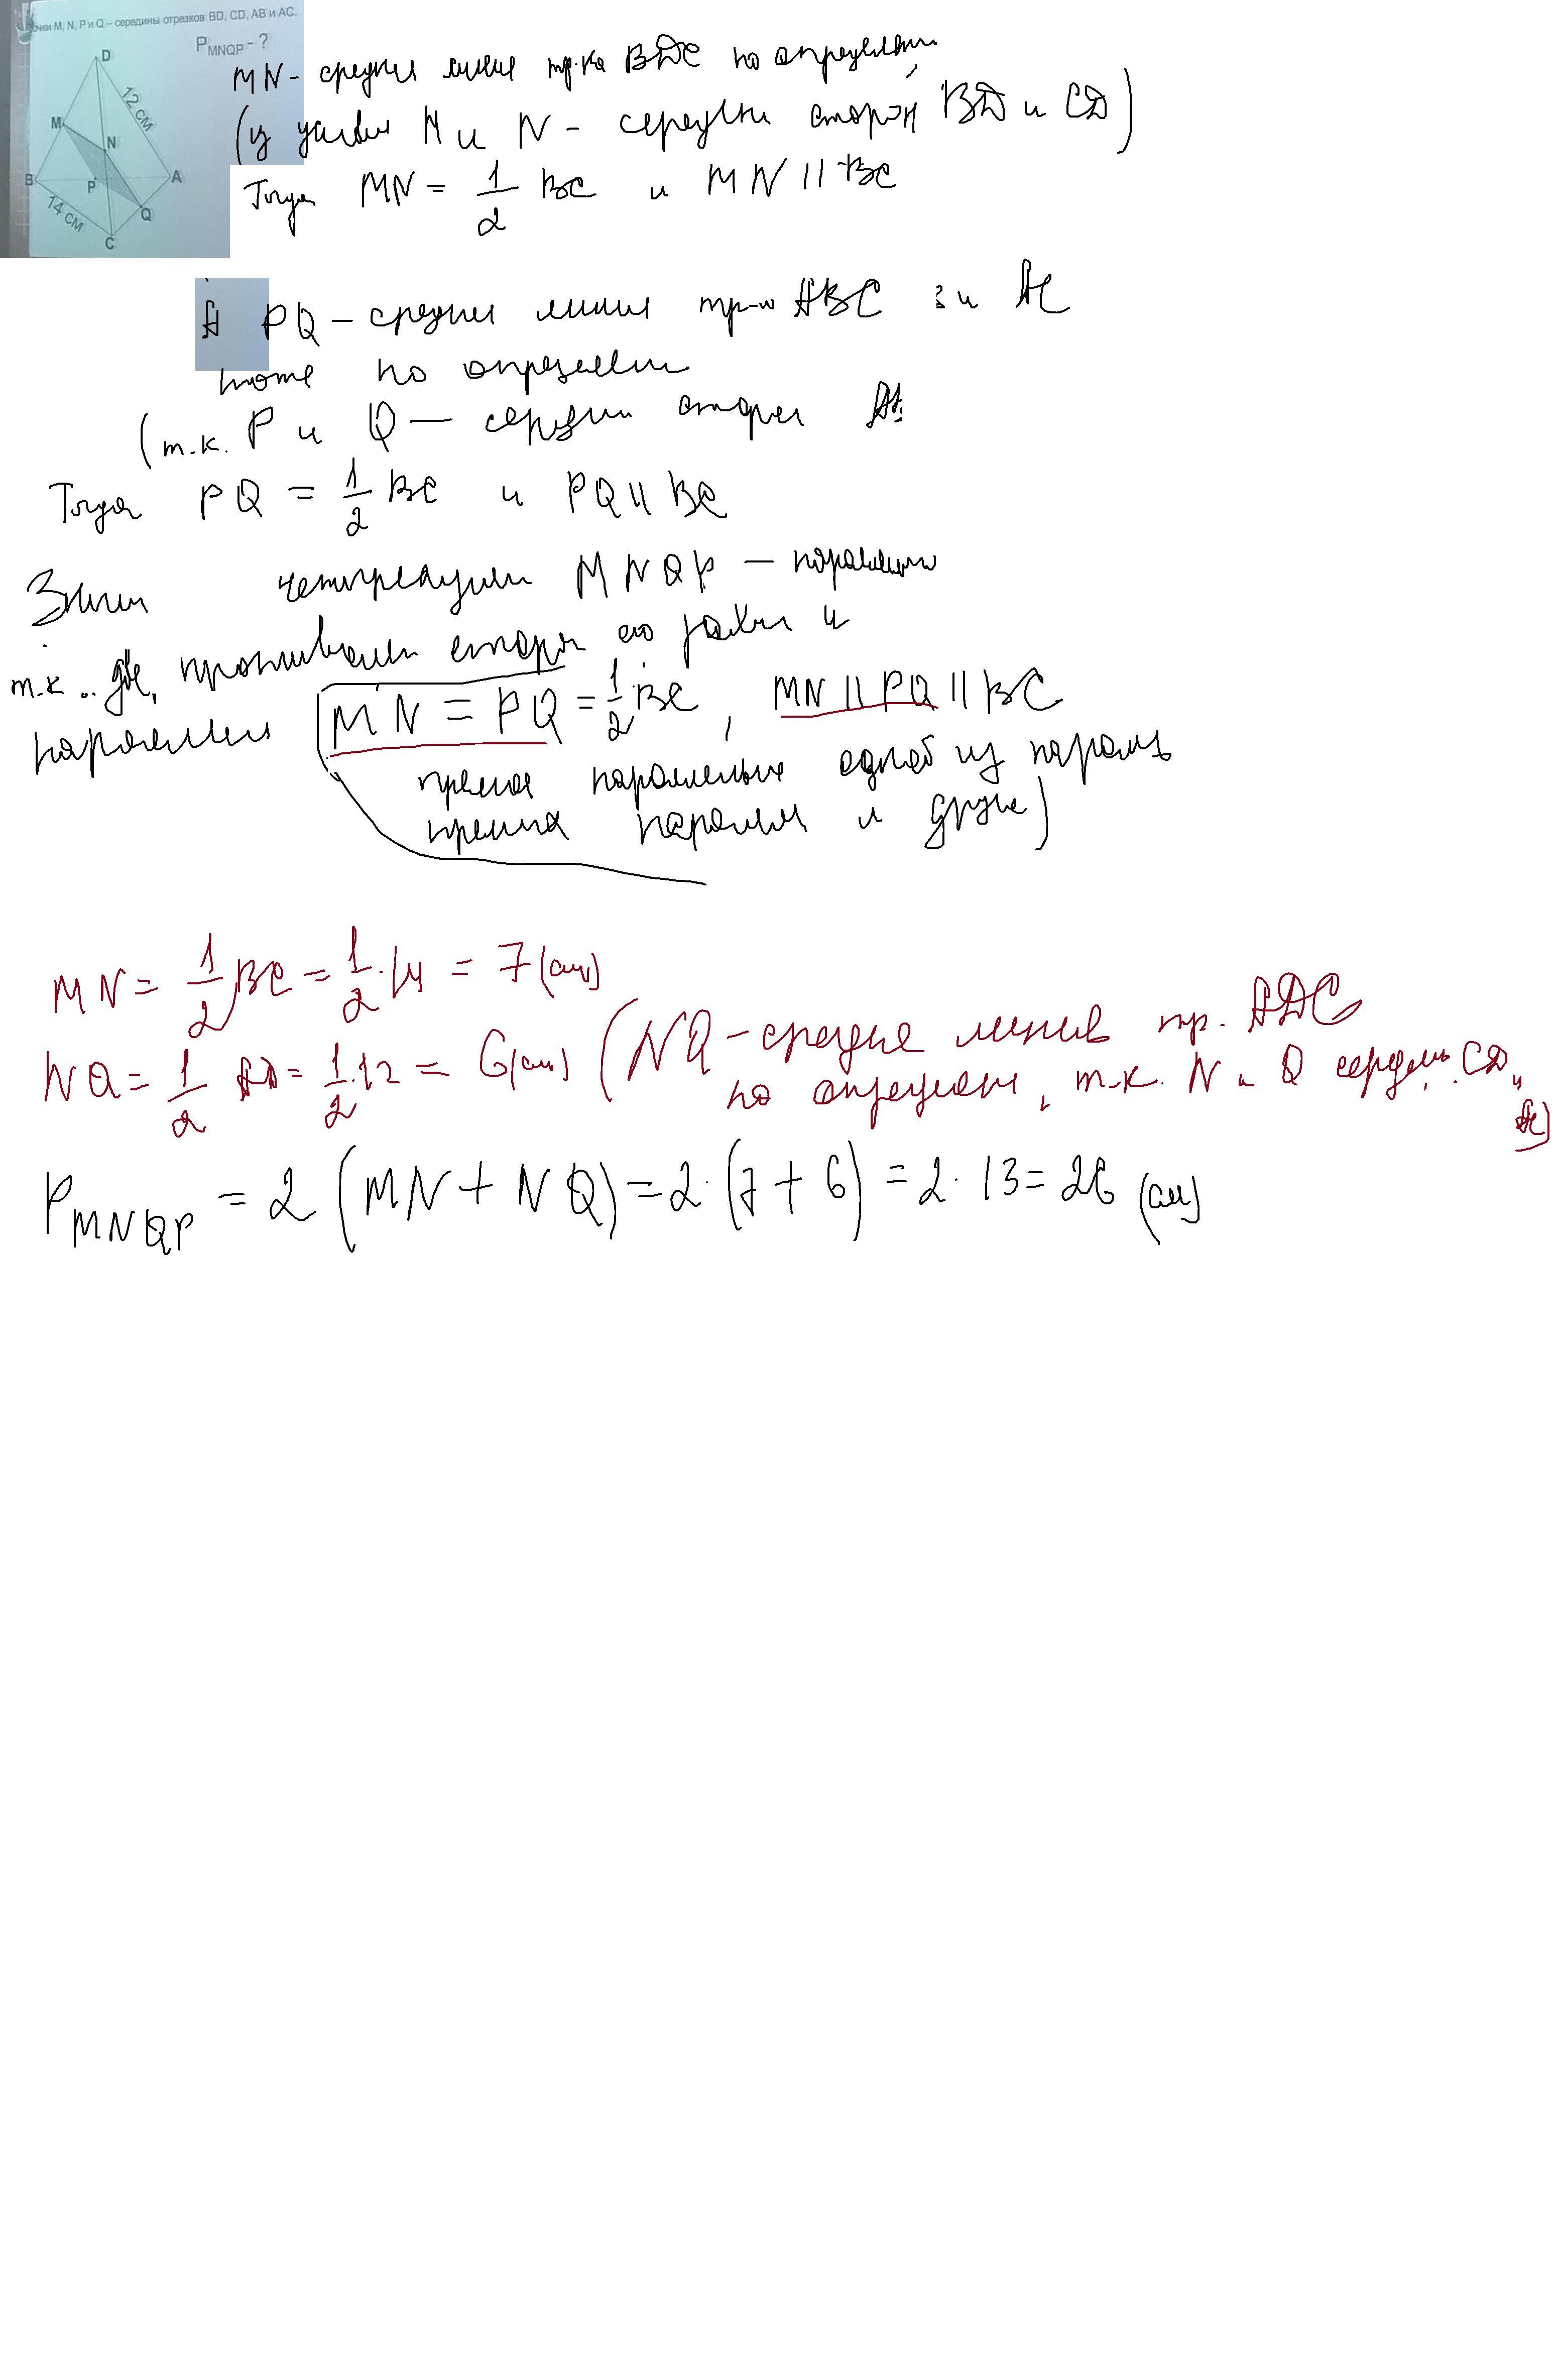 очки M, N, P и Q – середины отрезков BD, CD, AB и AC.
P MNQP - ?
D
12 см
M
N
B
P
A
14 см
Q
C
MN - средняя линия тр-ка BDC по определен
(из условия M и N - середины сторон BD и CD)
Тогда MN = 1/2 BC и MN || BC
А PQ – средняя линия тр-ка ABC и AC
тоже по определен
(т.к. P и Q — середин сторон
Тогда PQ = 1/2 BC и PQ || BC
Значит четырехугольн MNQP – параллелограм
т.к. две противополож стороны его равны и
параллельн MN = PQ = 1/2 BC, MN || PQ || BC
прямая параллельная одной из паралл
прямых параллельна и другой)
MN = 1/2 BC = 1/2 · 14 = 7 (см)
NQ = 1/2 AD = 1/2 · 12 = 6 (см) (NQ - средняя линия тр. ADC
по определен, т.к. N и Q середины CD и
AC)
P MNQP = 2 (MN + NQ) = 2 · (7 + 6) = 2 · 13 = 26 (см)